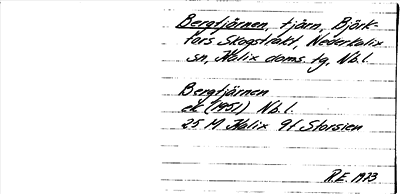 Bergtjärnen, tjärn, Björk-
fors Skogstrakt, Nederkalix
sn, Kalix doms. tg, Nb.l.
Bergtjärnen
ek (1951) Nb.l.
25 M Kalix 9f Storsien
R.E. 1973